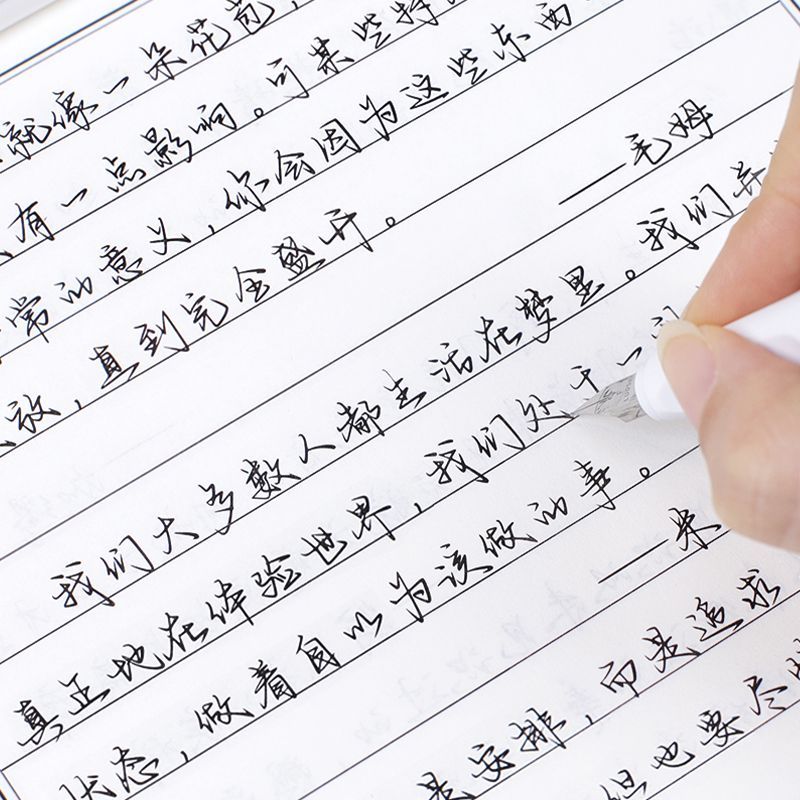 就像一朵花苞，
有一点影响。可某些特
常的意义，你会因为这些东西
放，直到完全盛开。
——毛姆
我们大多数人都生活在梦里。我们并
真正地在体验世界，我们处于一
状态，做着自以为该做的事。
——米
是安排，而是追求
但也要尽